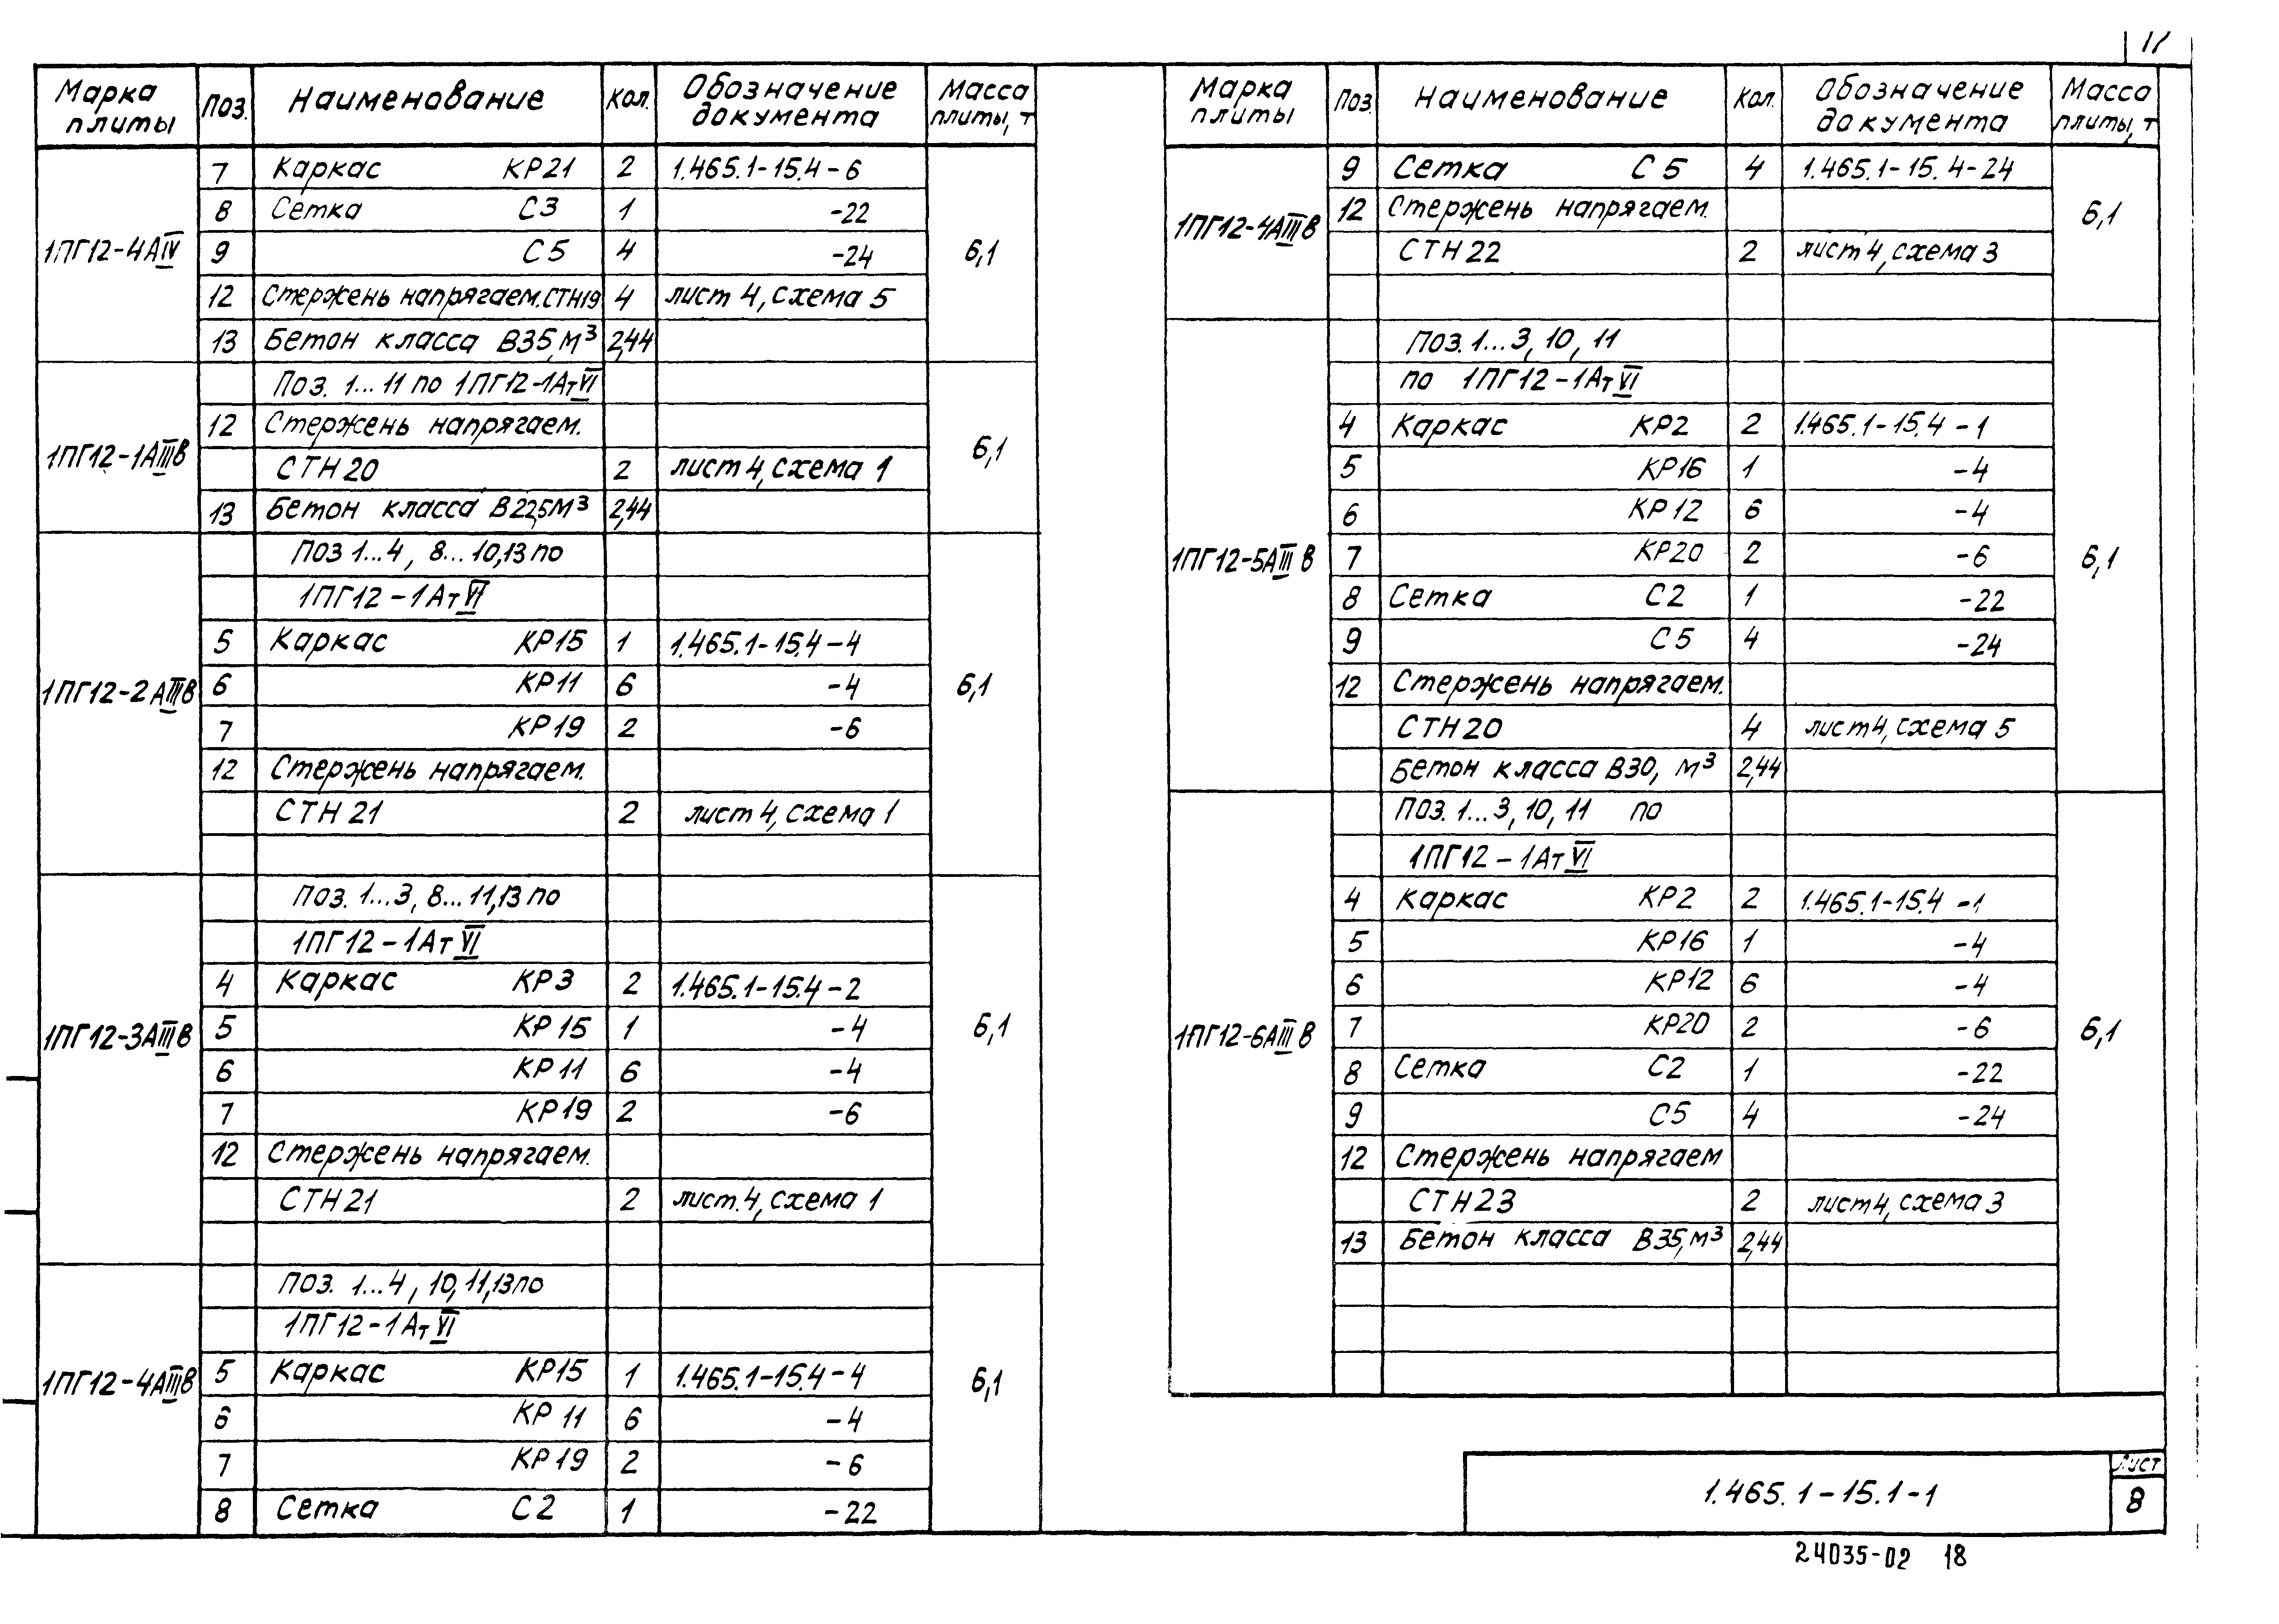 17
Марка плиты Поз. Наименование Кол. Обозначение документа Масса плиты, т
1ПГ12-4АIV 6,1
7 Каркас КР21 2 1.465.1-15.4-6
8 Сетка С3 1 -22
9 С5 4 -24
12 Стержень напрягаем. СТН19 4 лист 4, схема 5
13 Бетон класса В35, м³ 2,44
1ПГ12-1АIIIв 6,1
Поз. 1...11 по 1ПГ12-1АтVI
12 Стержень напрягаем.
СТН20 2 лист 4, схема 1
13 Бетон класса В22,5 м³ 2,44
1ПГ12-2АIIIв 6,1
Поз 1...4, 8...10,13 по
1ПГ12-1АтVI
5 Каркас КР15 1 1.465.1-15.4-4
6 КР11 6 -4
7 КР19 2 -6
12 Стержень напрягаем.
СТН21 2 лист 4, схема 1
1ПГ12-3АIIIв 6,1
Поз. 1...3, 8...11,13 по
1ПГ12-1АтVI
4 Каркас КР3 2 1.465.1-15.4-2
5 КР15 1 -4
6 КР11 6 -4
7 КР19 2 -6
12 Стержень напрягаем.
СТН21 2 лист. 4, схема 1
1ПГ12-4АIIIв 6,1
Поз. 1...4, 10, 11,13 по
1ПГ12-1АтVI
5 Каркас КР15 1 1.465.1-15.4-4
6 КР11 6 -4
7 КР19 2 -6
8 Сетка С2 1 -22
Марка плиты Поз Наименование Кол. Обозначение документа Масса плиты, т
1ПГ12-4АIIIв 6,1
9 Сетка С5 4 1.465.1-15.4-24
12 Стержень напрягаем.
СТН22 2 лист 4, схема 3
1ПГ12-5АIIIв 6,1
Поз. 1...3, 10, 11
по 1ПГ12-1АтVI
4 Каркас КР2 2 1.465.1-15.4-1
5 КР16 1 -4
6 КР12 6 -4
7 КР20 2 -6
8 Сетка С2 1 -22
9 С5 4 -24
12 Стержень напрягаем.
СТН20 4 лист 4, схема 5
Бетон класса В30, м³ 2,44
1ПГ12-6АIIIв 6,1
Поз. 1...3, 10, 11 по
1ПГ12-1АтVI
4 Каркас КР2 2 1.465.1-15.4-1
5 КР16 1 -4
6 КР12 6 -4
7 КР20 2 -6
8 Сетка С2 1 -22
9 С5 4 -24
12 Стержень напрягаем
СТН23 2 лист 4, схема 3
13 Бетон класса В35, м³ 2,44
1.465.1-15.1-1
Лист
8
24035-02 18